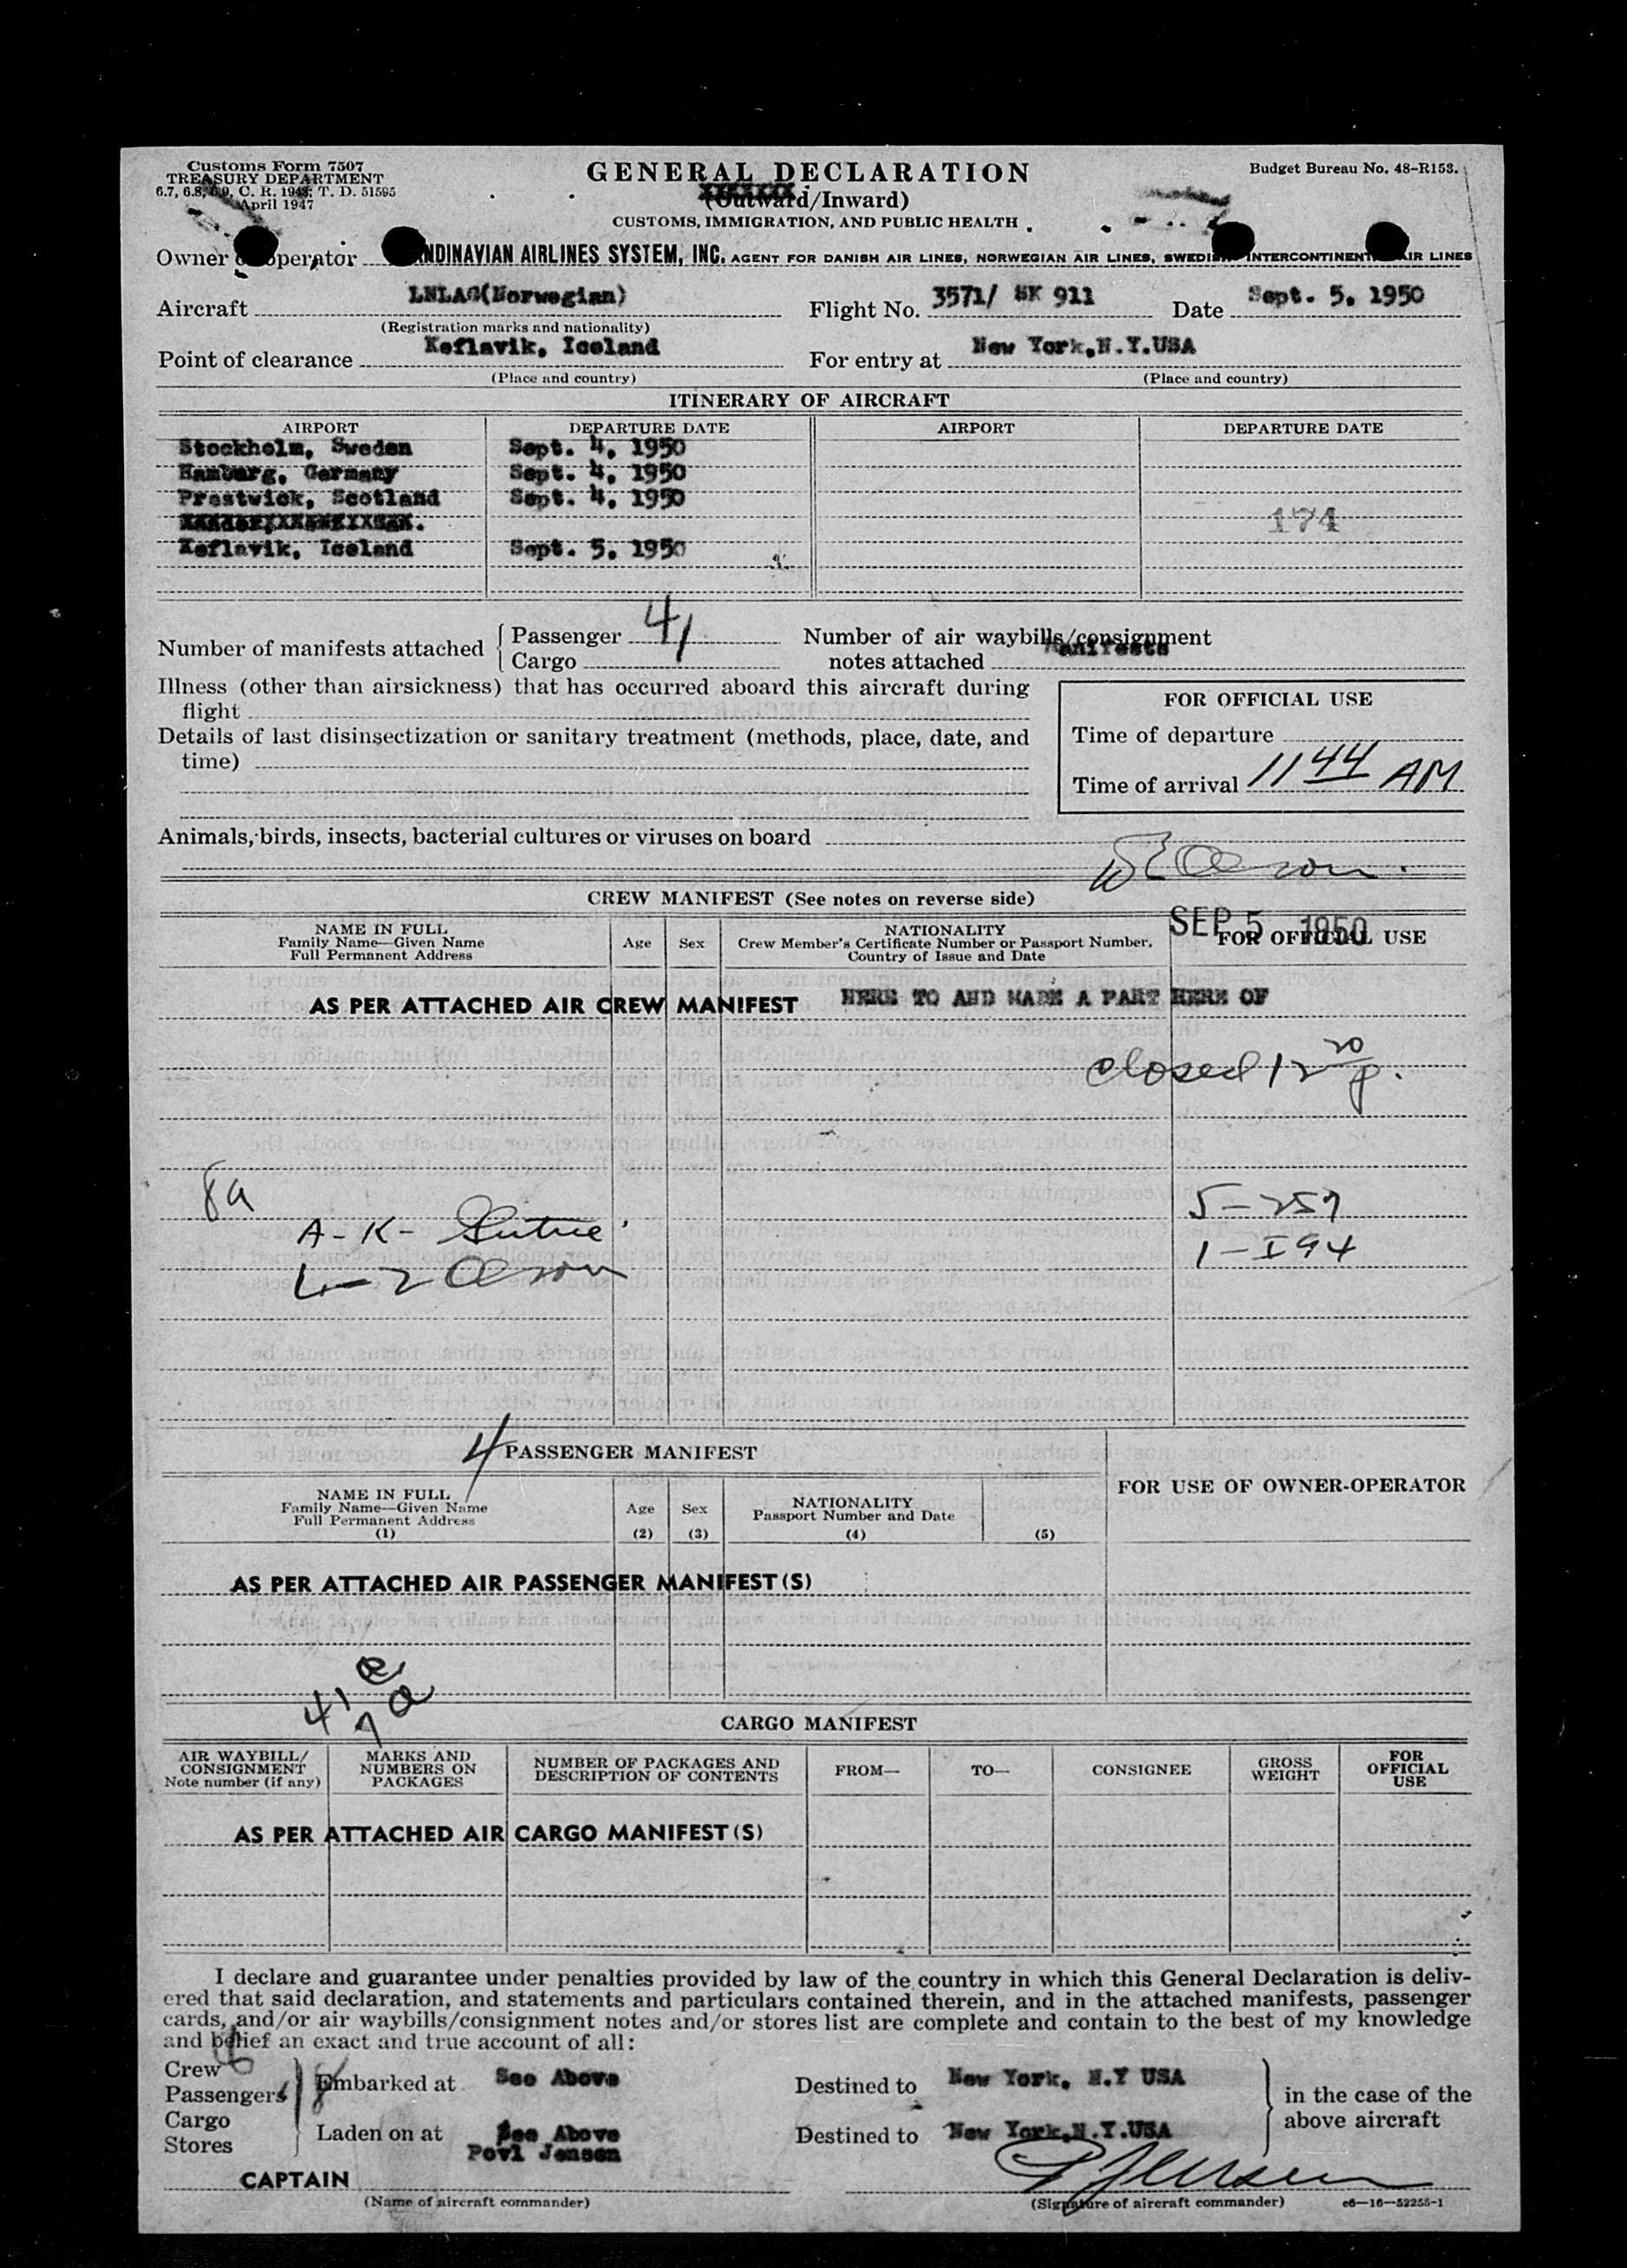 Customs Form 7507
TREASURY DEPARTMENT
6.7, 6.8, 6.9, C. R. 1943; T. D. 51595
April 1947
GENERAL DECLARATION
(Outward/Inward)
CUSTOMS, IMMIGRATION, AND PUBLIC HEALTH
Budget Bureau No. 48-R153.
Owner or operator NDINAVIAN AIRLINES SYSTEM, INC. AGENT FOR DANISH AIR LINES, NORWEGIAN AIR LINES, SWEDISH INTERCONTINENTAL AIR LINES
Aircraft LNLAG(Norwegian) Flight No. 3571/ SK 911 Date Sept. 5. 1950
(Registration marks and nationality)
Point of clearance Keflavik, Iceland For entry at New York,N.Y.USA
(Place and country) (Place and country)
ITINERARY OF AIRCRAFT
AIRPORT DEPARTURE DATE AIRPORT DEPARTURE DATE
Stockholm, Sweden Sept. 4, 1950
Hamburg, Germany Sept. 4, 1950
Prestwick, Scotland Sept. 4, 1950
174
Keflavik, Iceland Sept. 5. 1950
Number of manifests attached { Passenger 41 Number of air waybills/consignment
Cargo notes attached Manifests
Illness (other than airsickness) that has occurred aboard this aircraft during
flight
Details of last disinsectization or sanitary treatment (methods, place, date, and
time)
FOR OFFICIAL USE
Time of departure
Time of arrival 11 44 AM
Animals, birds, insects, bacterial cultures or viruses on board
CREW MANIFEST (See notes on reverse side)
SEP 5 1950
NAME IN FULL
Family Name—Given Name
Full Permanent Address
Age Sex
NATIONALITY
Crew Member's Certificate Number or Passport Number,
Country of Issue and Date
FOR OFFICIAL USE
AS PER ATTACHED AIR CREW MANIFEST HERE TO AND MADE A PART HERE OF
closed 12 20 p.
8a
5-257
A-K-
1-I94
4 PASSENGER MANIFEST
NAME IN FULL
Family Name—Given Name
Full Permanent Address
(1)
Age
(2)
Sex
(3)
NATIONALITY
Passport Number and Date
(4)
(5)
FOR USE OF OWNER-OPERATOR
AS PER ATTACHED AIR PASSENGER MANIFEST(S)
41
CARGO MANIFEST
AIR WAYBILL/
CONSIGNMENT
Note number (if any)
MARKS AND
NUMBERS ON
PACKAGES
NUMBER OF PACKAGES AND
DESCRIPTION OF CONTENTS
FROM—
TO—
CONSIGNEE
GROSS
WEIGHT
FOR
OFFICIAL
USE
AS PER ATTACHED AIR CARGO MANIFEST(S)
I declare and guarantee under penalties provided by law of the country in which this General Declaration is deliv-
ered that said declaration, and statements and particulars contained therein, and in the attached manifests, passenger
cards, and/or air waybills/consignment notes and/or stores list are complete and contain to the best of my knowledge
and belief an exact and true account of all:
Crew
Passengers
Embarked at See Above Destined to New York, N.Y USA
in the case of the
above aircraft
Cargo
Stores
Laden on at See Above Destined to New York,N.Y.USA
Povl Jensen
CAPTAIN PJensen
(Name of aircraft commander) (Signature of aircraft commander) c6—16—52255-1